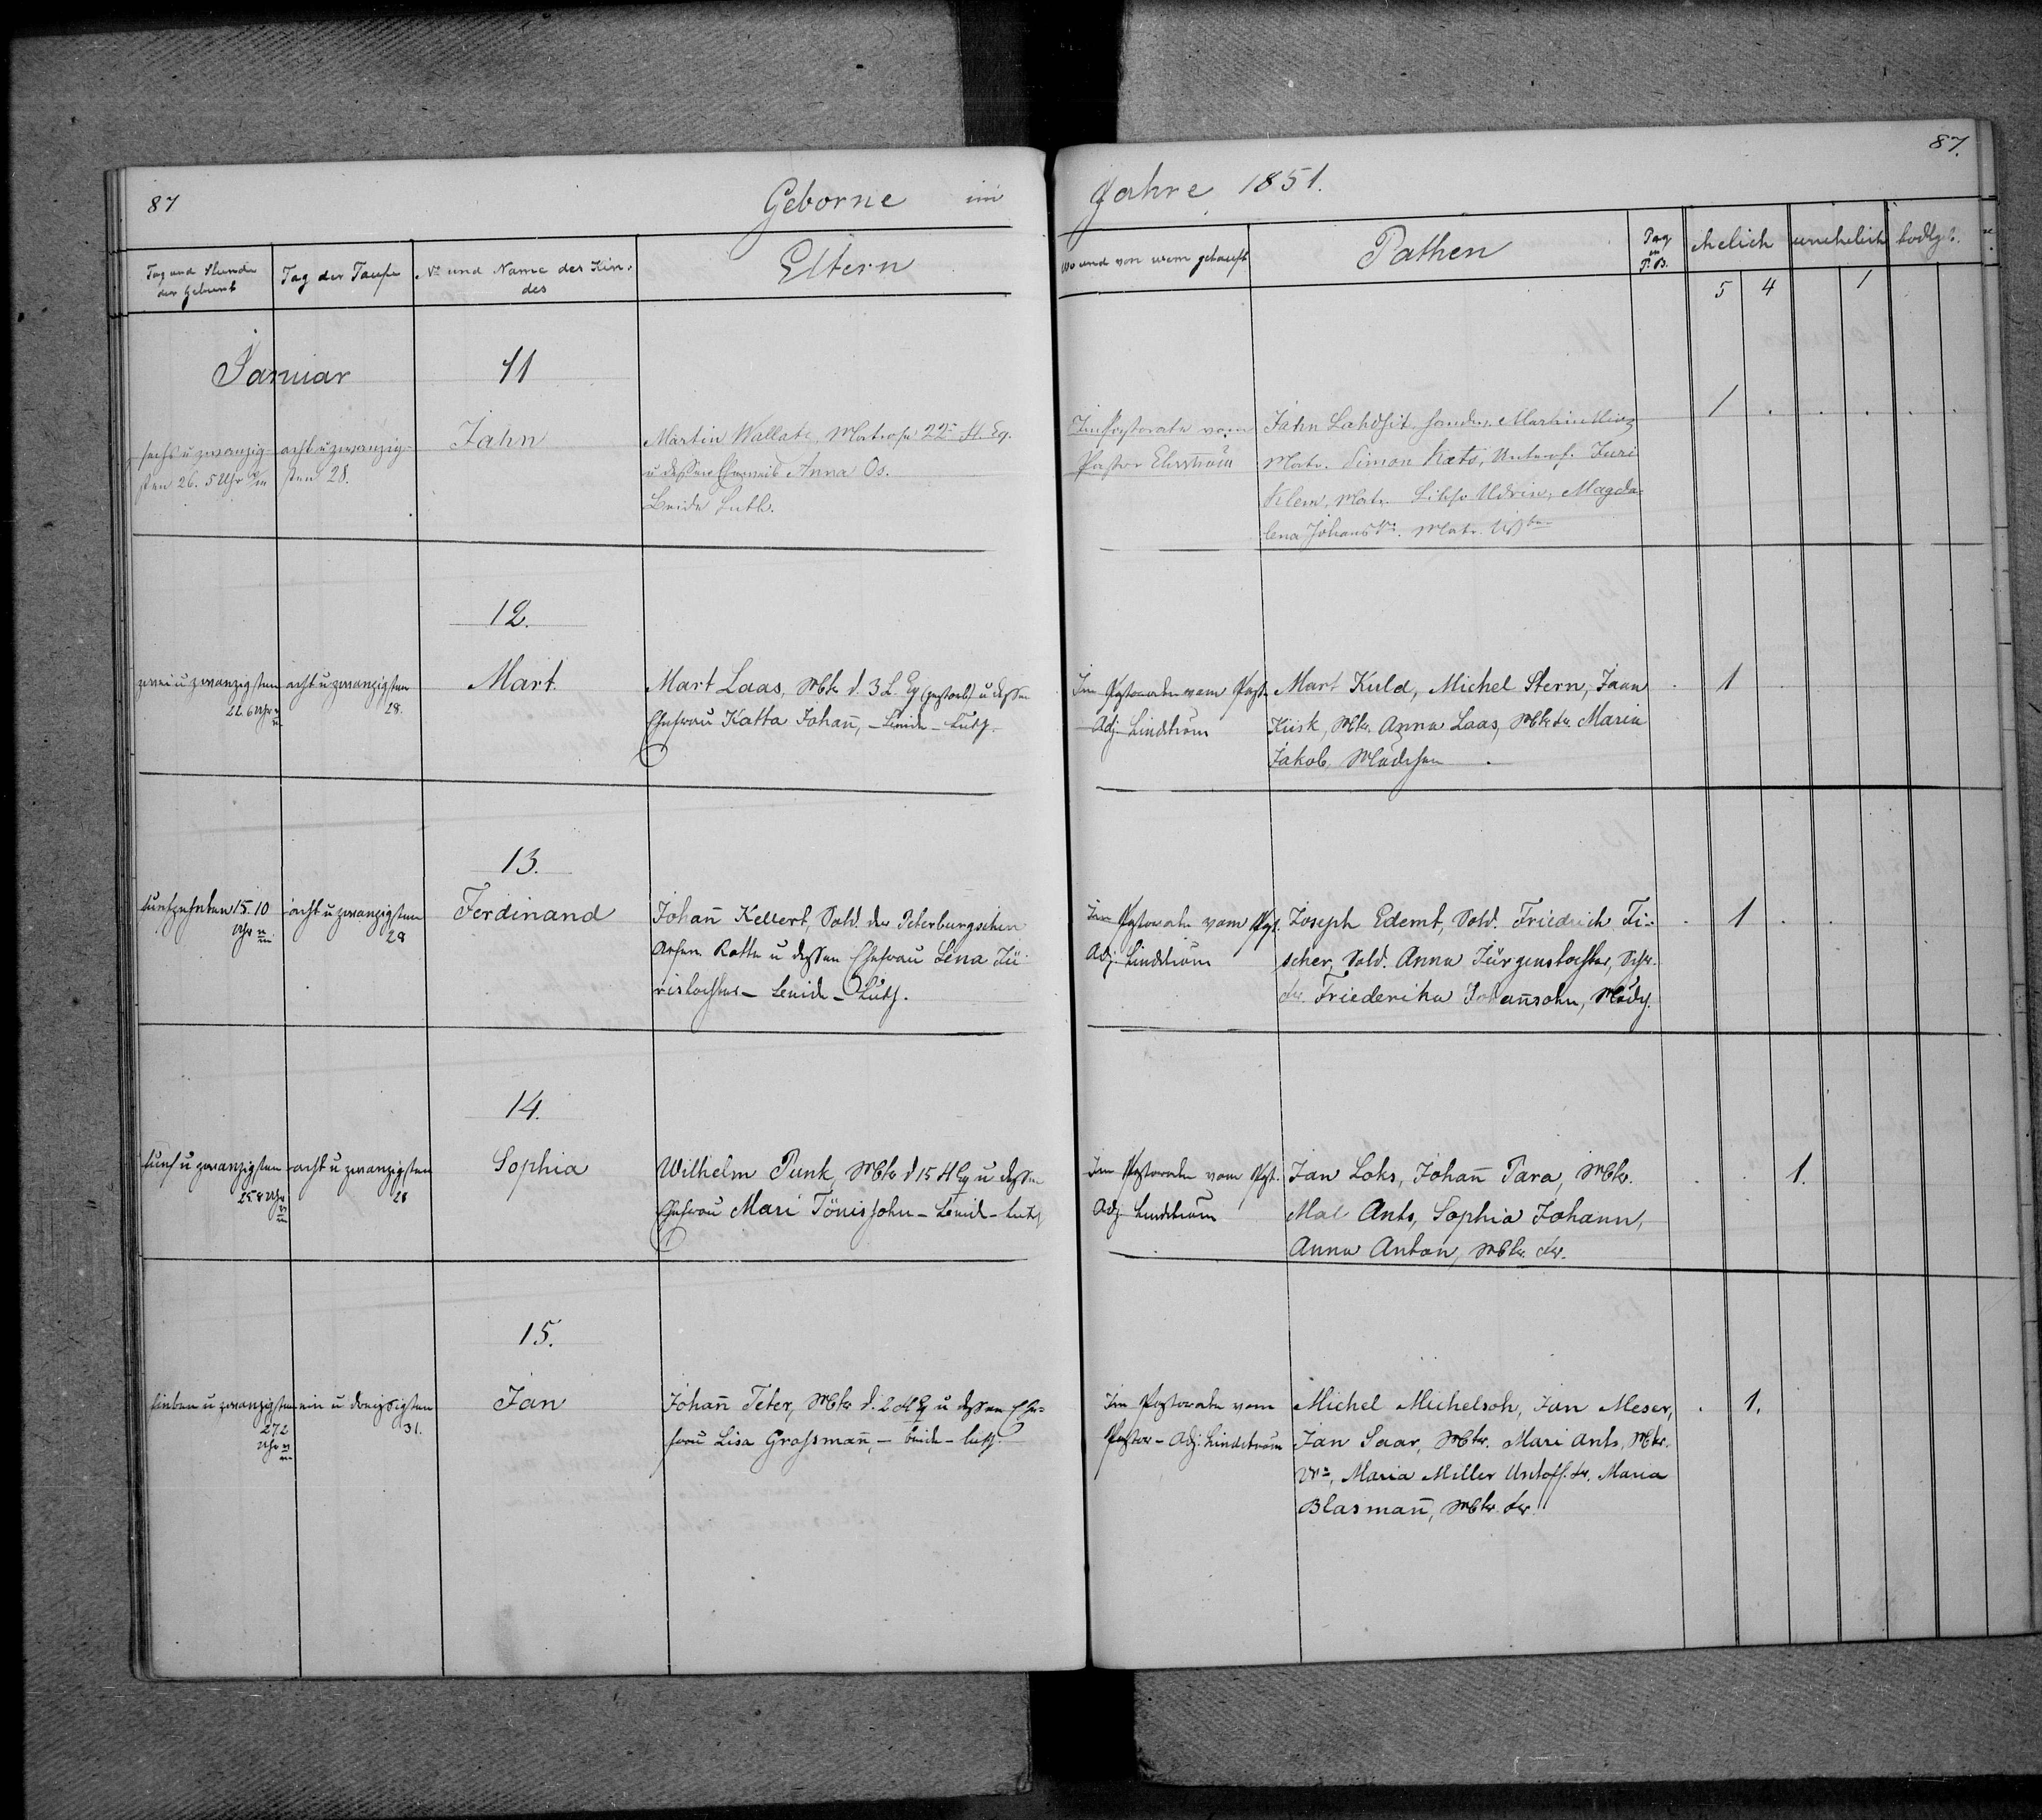 87
Geborne im
Jahre 1851.
87.
Tag und Stunde der Geburt
Tag der Taufe
No und Name des Kindes
Eltern
Wo und von wem getauft
Pathen
Tag
ehelich
unehelich
todtgb.
5 4 1
Januar
11
sechs u zwanzigsten 26. 5 Uhr
acht u zwanzigsten 28.
Jahn
Martin Wallats, Matrose 22r Fl. Eq.
u dessen Eheweib Anna Os.
Beide Luth.
Im Pastorate vom
Pastor Ehrström
Jahn Martin
Matr. Simon Kats, Unterof. Juri
Klem, Matr. Magda-
lena Matr.
1
12.
zwei u zwanzigsten
22. 6 Uhr
acht u zwanzigsten
28.
Mart.
Mart Laas, Mtr d. 3 L. Eq u dessen
Ehefrau Katta Johan̄, - beide - Luth.
Im Pastorate vom Past.
Adj. Lindström
Mart Kuld, Michel Stern, Jaan
Kiisk, Mtr. Anna Laas, Mtr. tr. Maria
Jakob, Mädchen
1
13.
funfzehnten 15. 10
Uhr
acht u zwanzigsten
28
Ferdinand
Johan̄ Kellert, Sold. der Peterburgschen
Arsen. Rotte u dessen Ehefrau Lena Jü-
ristochter - beide - Luth.
Im Pastorate vom Past.
Adj. Lindström
Joseph Edemt, Sold. Friedrich Fi-
scher, Sold. Anna Jürgenstochter,
tr. Friederika Johan̄sohn, Mädch.
1
14.
funf u zwanzigsten
25. 8 Uhr
acht u zwanzigsten
28
Sophia
Wilhelm Punk, Mtr d 15 Eq u dessen
Ehefrau Mari Tönissohn - beide - luth
Im Pastorate vom Past.
Adj. Lindström
Jan Loks, Johan̄ Para, Mtr.
Mal Ants, Sophia Johann,
Anna Anton, Mtr. tr.
1.
15.
sieben u zwanzigsten
27. 2
Uhr
ein u dreizsigsten
31.
Jan
Johan̄ Peter, Mtr d. 2 Eq u dessen Ehe-
frau Lisa Grossman̄, - beide - luth.
Im Pastorate vom
Pastor - Adj. Lindström
Michel Michelsoh, Jan Meser,
Jan Saar, Mtr. Mari Ants, Mtr.
Maria Miller Untoff. tr. Maria
Blasman̄, Mtr. tr.
1.